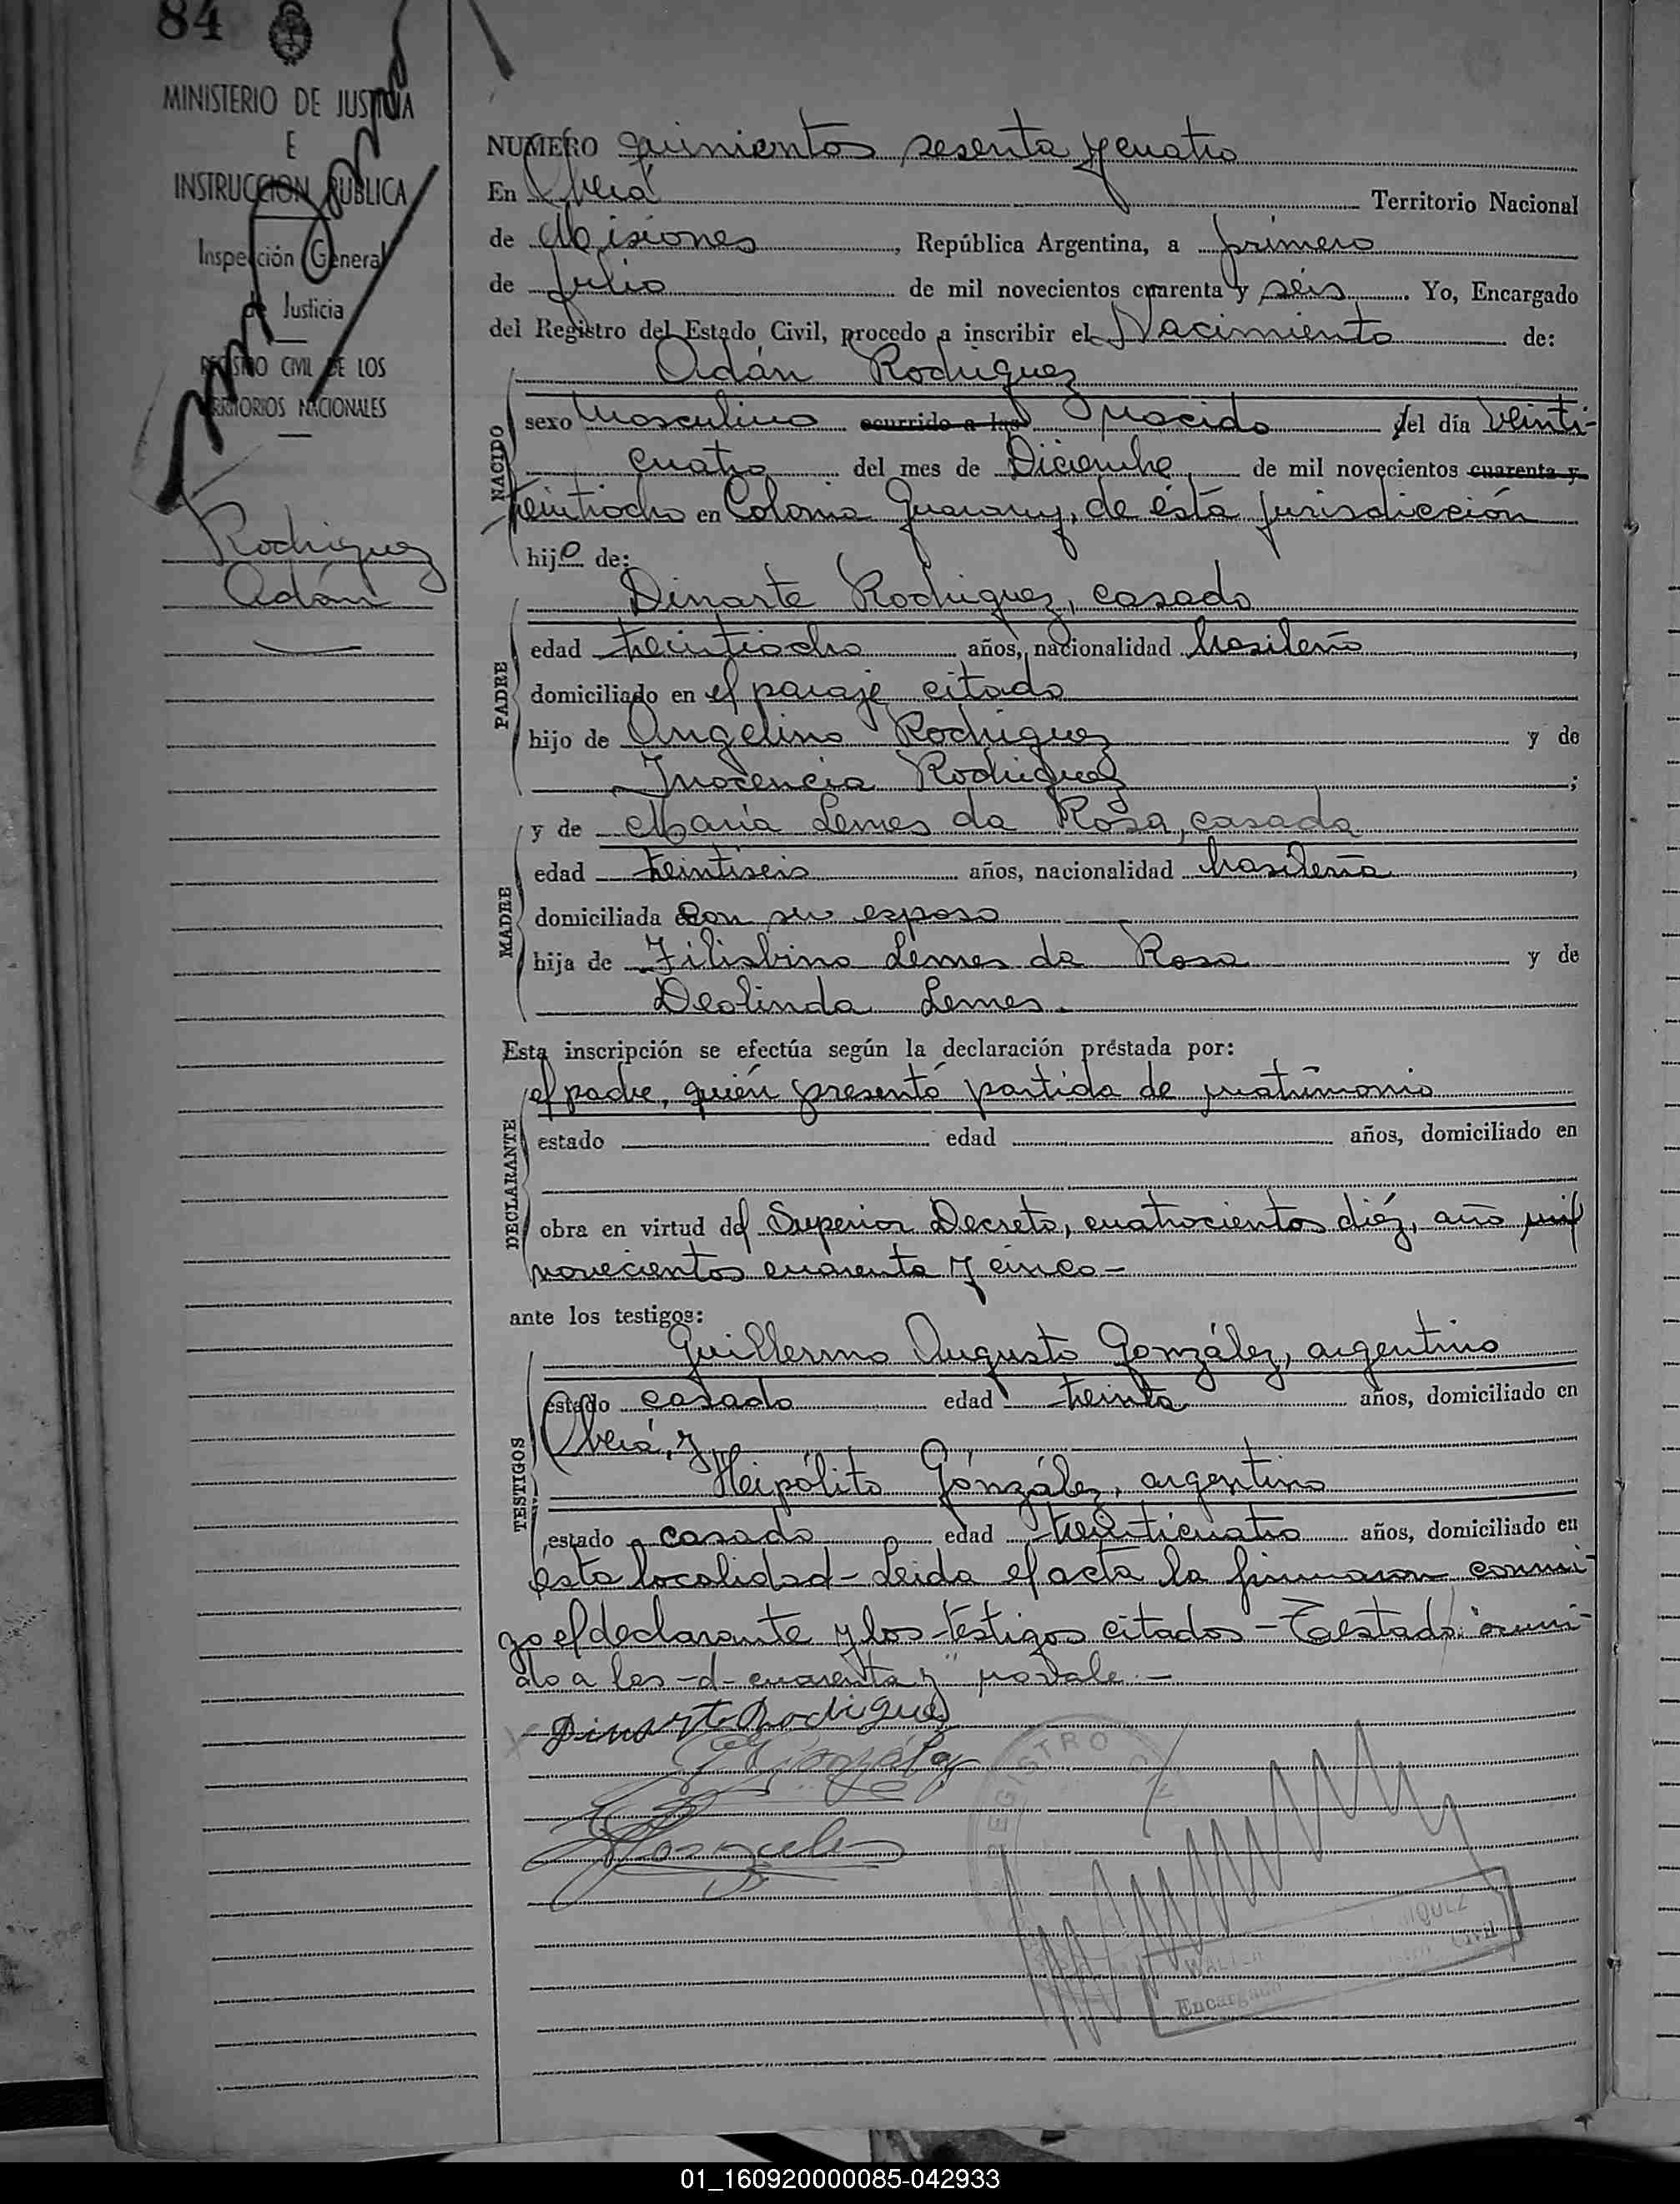 84
MINISTERIO DE JUSTICIA
E
INSTRUCCION PUBLICA
Inspección General
de Justicia
REGISTRO CIVIL DE LOS
TERRITORIOS NACIONALES
Rodriguez
Adán
NUMERO quinientos sesenta y cuatro
En Oberá Territorio Nacional
de Misiones, República Argentina, a primero
de Julio de mil novecientos cuarenta y séis. Yo, Encargado
del Registro del Estado Civil, procedo a inscribir el Nacimiento de:
Adán Rodriguez
NACIDO
sexo Masculino ocurrido a las Nacido del día veinti-
cuatro del mes de Diciembre de mil novecientos cuarenta y
treintiocho en Colonia Guarany, de ésta jurisdicción
hijo de:
PADRE
Dinarte Rodriguez, casado
edad treintiocho años, nacionalidad brasileño,
domiciliado en el paraje citado
hijo de Angelino Rodriguez y de
Inocencia Rodriguez;
MADRE
y de María Lemes da Rosa, casada
edad treintiseis años, nacionalidad brasileña,
domiciliada con su esposo
hija de Filisbino Lemes da Rosa y de
Deolinda Lemes.
Esta inscripción se efectúa según la declaración prestada por:
DECLARANTE
el padre, quién presentó partida de matrimonio
estado edad años, domiciliado en
obra en virtud del Superior Decreto, cuatrocientos diéz, año mil
novecientos cuarenta y cinco-
ante los testigos:
TESTIGOS
Guillermo Augusto González, argentino
estado casado edad treinta años, domiciliado en
Oberá, y
Heipólito Gónzález, argentino
estado casado edad treinticuatro años, domiciliado en
ésta localidad- Leida el acta la firmaron conmi-
go el declarante y los testigos citados - Testado: "ocurri-
do a las -d- cuarenta y" no vale.-
Dinarte Rodriguez
González
REGISTRO
WALTER
Encargado Civil
01_160920000085-042933